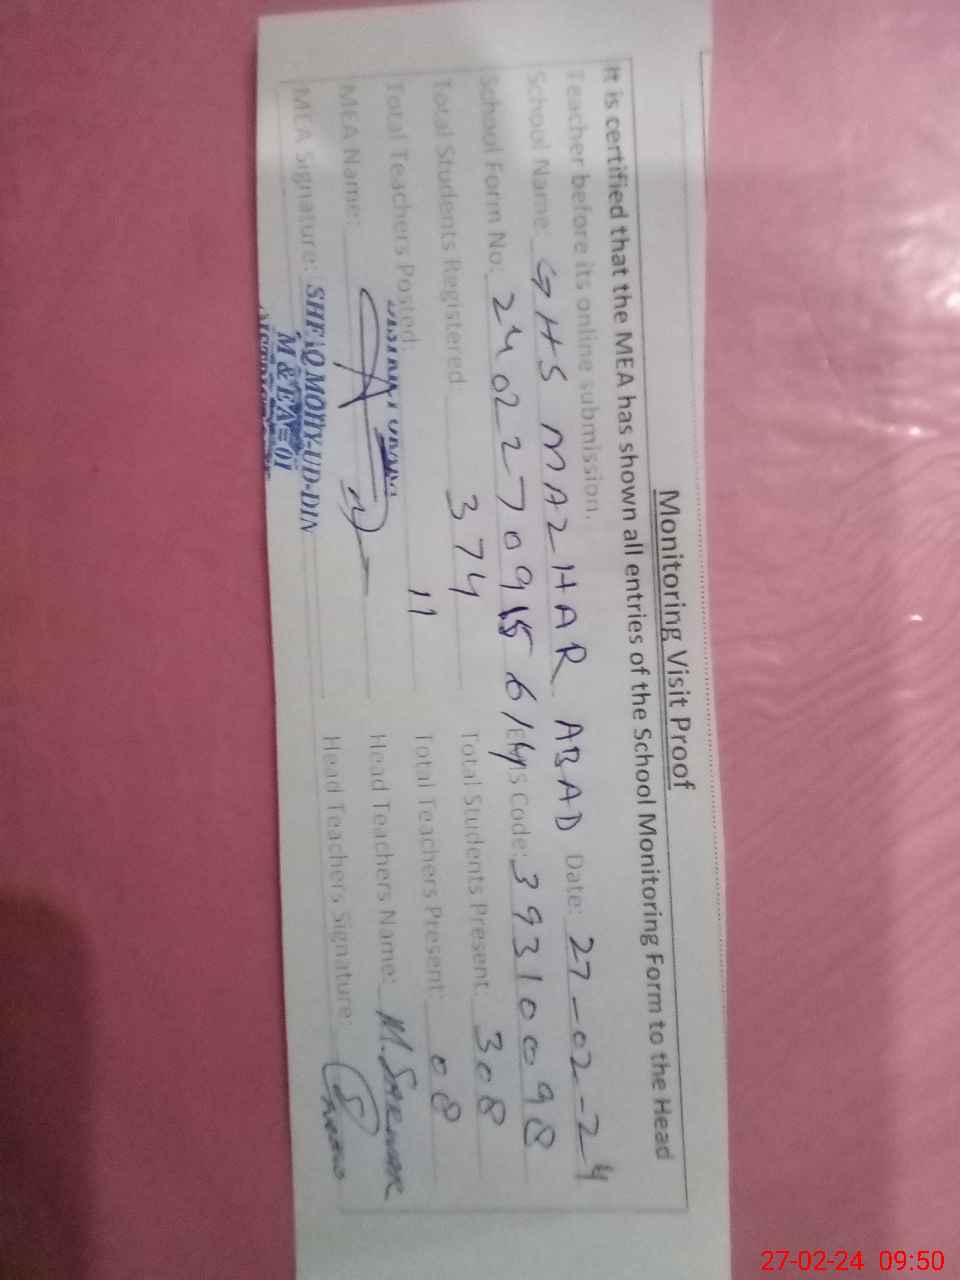 Monitoring Visit Proof
It is certified that the MEA has shown all entries of the School Monitoring Form to the Head
Teacher before its online submission.
School Name: GHS MAZHAR ABAD Date: 27-02-24
School Form No: EMIS Code: 39310098
Total Students Registered: 374 Total Students Present: 308
Total Teachers Posted: 11 Total Teachers Present: 08
MEA Name: Head Teachers Name: M. SARWAR
MEA Signature: Head Teachers Signature:
MOHY-UD-DIN
M & EA=01
27-02-24 09:50